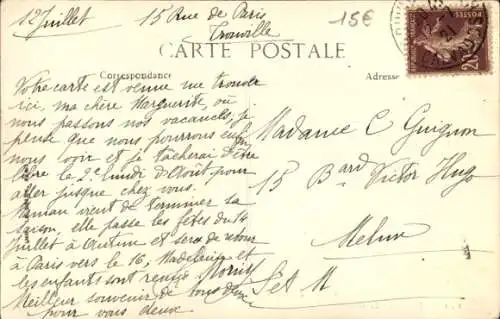 12 Juillet 15 Rue de Paris
Trouville
15€
CARTE POSTALE
Correspondance
Adresse
Votre carte est venue me trouver
ici, ma chère Marguerite, où
nous passons nos vacances, je
pense que nous pourrons enfin
nous voir et je tâcherai d'être
libre le 2e lundi d'Août pour
aller jusque chez vous.
Maman vient de terminer sa
saison, elle passe les fêtes du 14
Juillet à et sera de retour
à Paris vers le 16. Madeleine et
les enfants sont
Meilleur souvenir de tous deux
pour vous deux
Madame C Guignon
15 Bard Victor Hugo
Melun
S et M